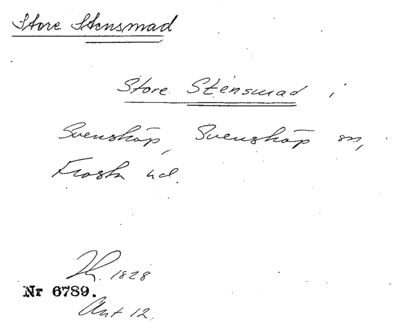 Store Stensmad
Store Stensmad i
Svensköp, Svensköp sn,
Frosta hd.
1828
Nr 6789.
Akt 12.